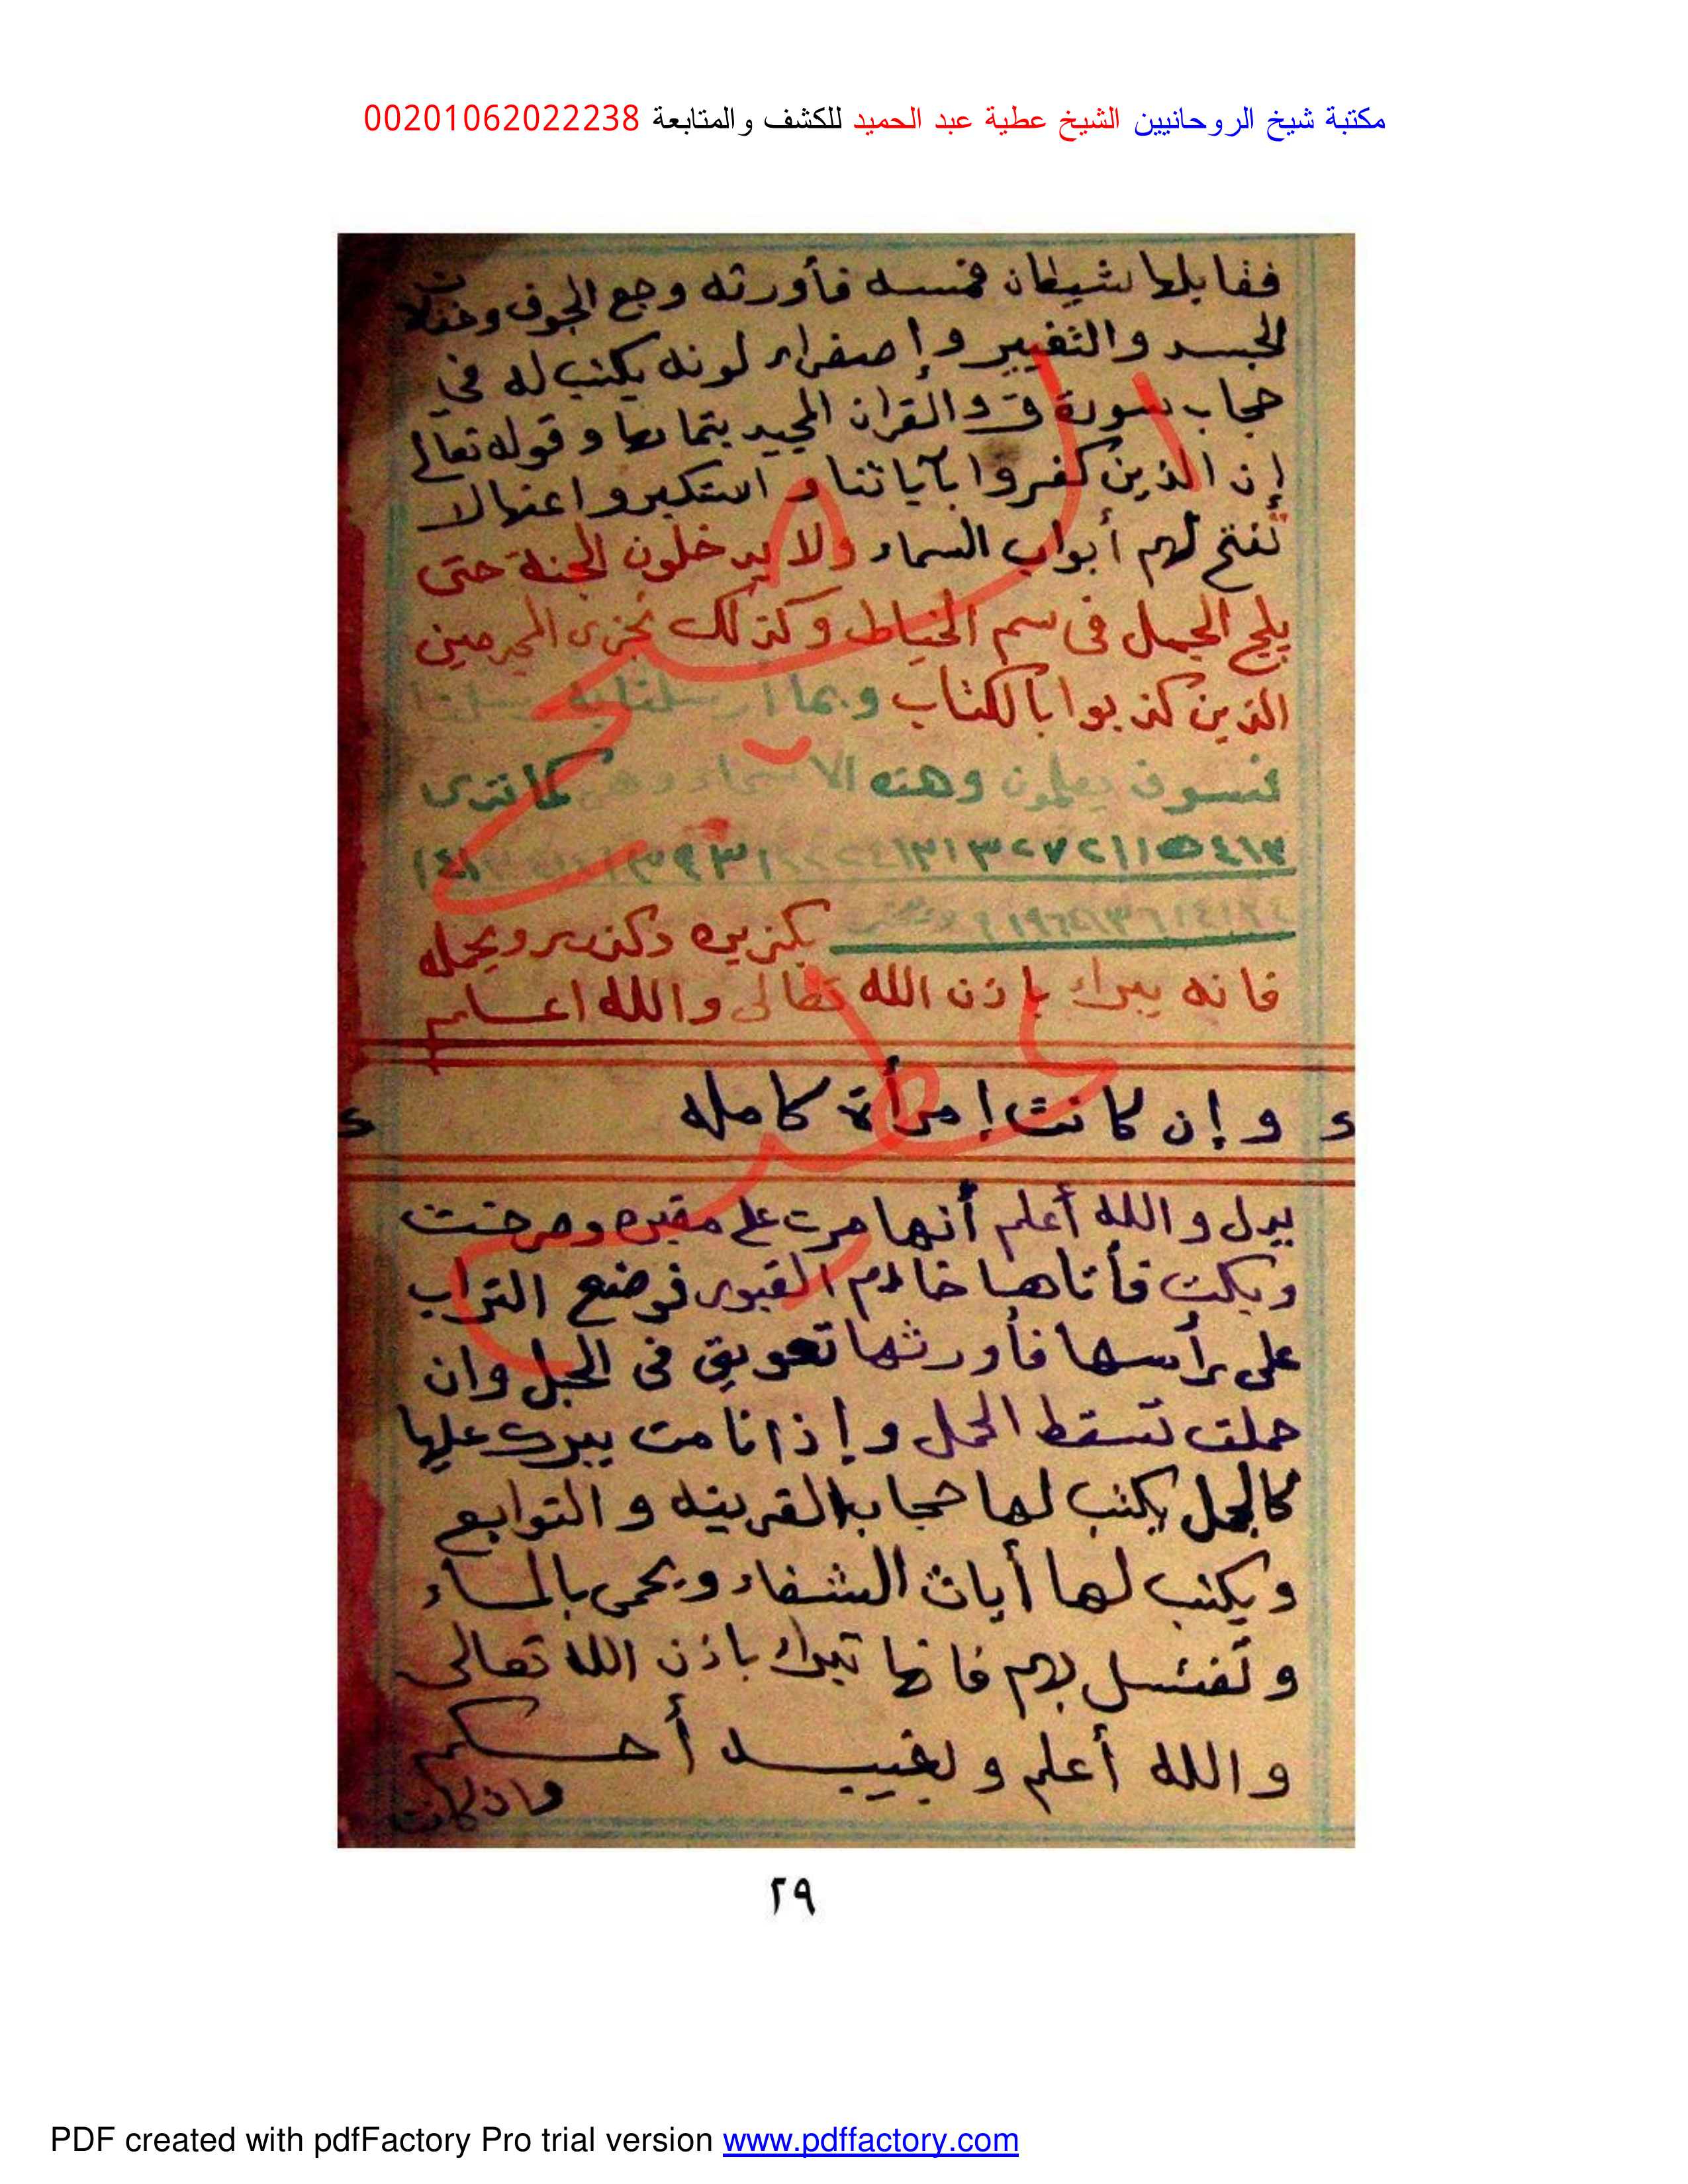 مكتبة شيخ الروحانيين الشيخ عطية عبد الحميد للكشف والمتابعة 00201062022238
فقابلها شيطان فمسه فأورثه وجع الجوف وخفلات
الجسد والتغيير وإصفرار لونه يكتب له في
حجاب سورة ق والقرآن المجيد بتمامها وقوله تعالى
إن الذين كفروا بآياتنا واستكبروا عنها لا
تفتح لهم أبواب السماء ولا يدخلون الجنة حتى
يلج الجمل فى سم الخياط وكذلك نجزى المجرمين
الذين كذبوا بالكتاب وبما أرسلنا به رسلنا
فسوف يعلمون وهذه الاسماء وهى كما ترى
ويحمله
فانه يبرأ باذن الله تعالى والله اعلم
وإن كانت إمرأة كامله
يدل والله أعلم أنها مرت على مقبره وصرخت
وبكت فأتاها خادم القبور فوضع التراب
على رأسها فأورثها تعويق فى الحبل وان
حملت تسقط الحمل وإذا نامت يبرك عليها
كالجمل يكتب لها حجاب القرينه والتوابع
ويكتب لها أيات الشفاء ويحمى بالماء
وتغتسل بهم فانها تبرأ باذن الله تعالى
والله أعلم وبغيبه أحكم
وان كانت
٢٩
PDF created with pdfFactory Pro trial version www.pdffactory.com